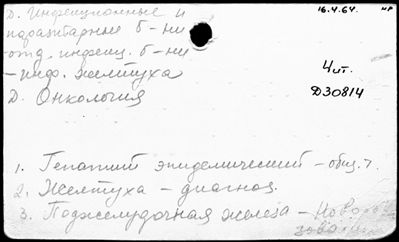 Д. Инфекционные и
паразитарные б-ни
-отд. инфекц. б-ни
-инф. желтуха
Д. Онкология
16.4.64. нр
Чит.
Д30814
1. Гепатит эпидемический - общ.?.
2. Желтуха - диагноз.
3. Поджелудочная железа - Новооб